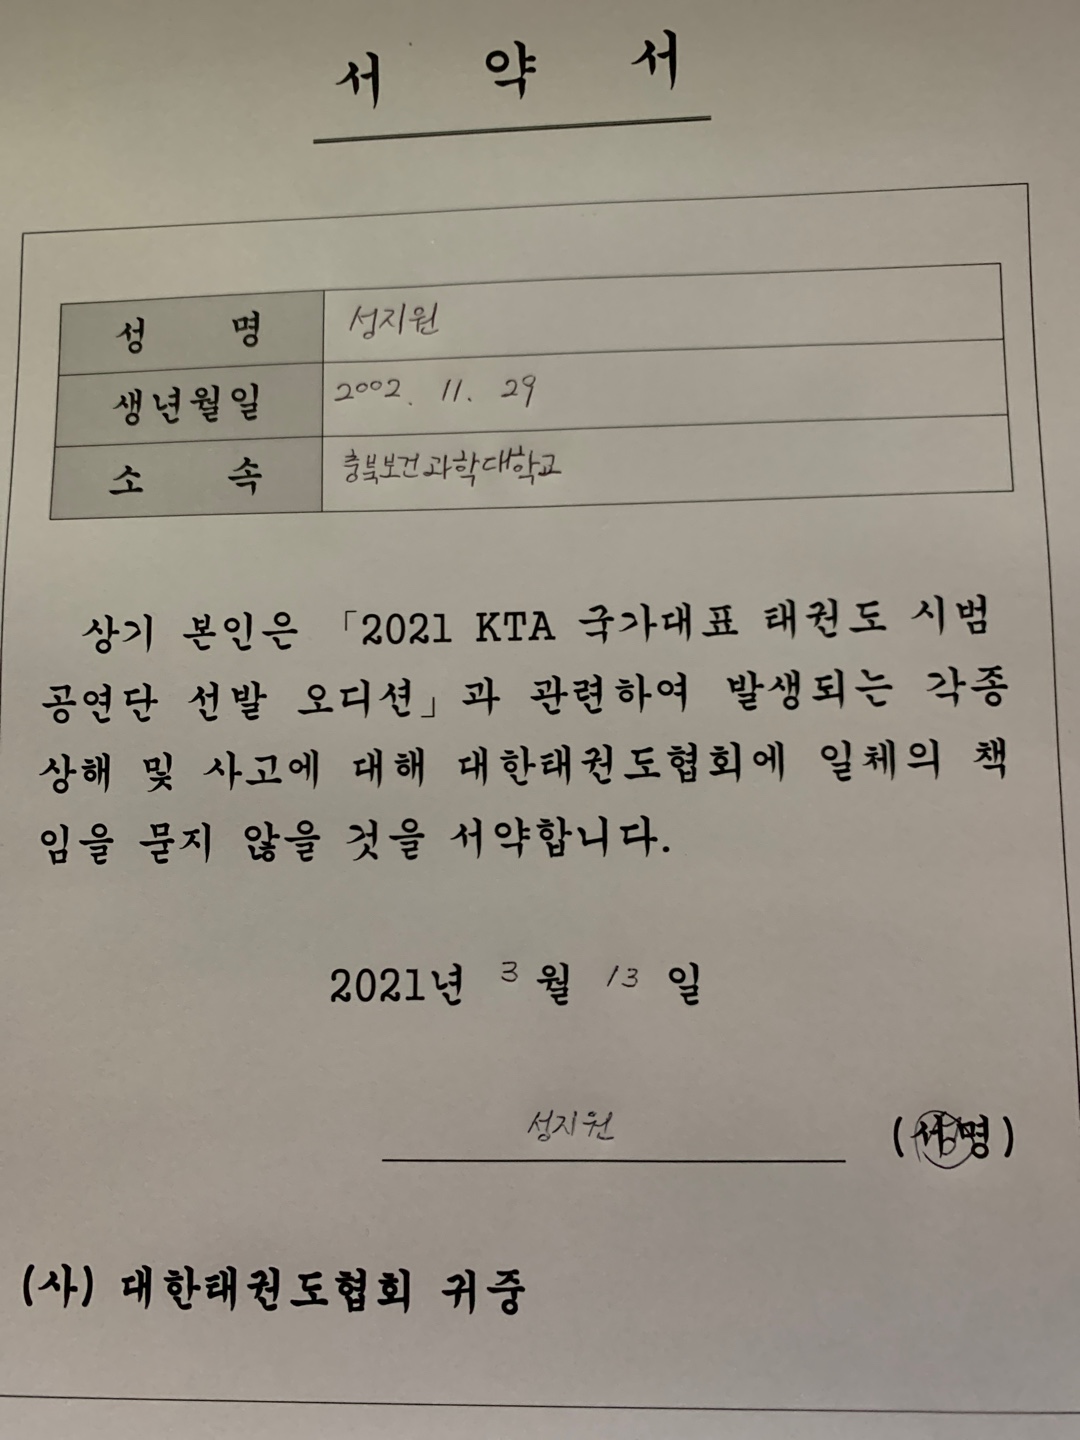 서 약 서
성 명 성지원
생년월일 2002. 11. 29
소 속 충북보건과학대학교
상기 본인은 「2021 KTA 국가대표 태권도 시범
공연단 선발 오디션」과 관련하여 발생되는 각종
상해 및 사고에 대해 대한태권도협회에 일체의 책
임을 묻지 않을 것을 서약합니다.
2021년 3월 13일
성지원 (서명)
(사) 대한태권도협회 귀중